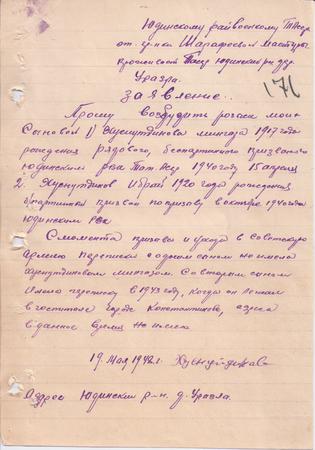 Юдинскому райвоенкому ТАССР
от гр-ки Шарафеевой Мастуры
прожив. в ТАССР Юдинский р-н дер.
Уразла.
176
Заявление.
Прошу возбудить розыск моих
сыновей 1) Хуснутдинова Мингаза 1907 года
рождения рядового, беспартийн призван
Юдинским РВК Тат. АССР 1940 году 15 апреля
2. Хуснутдинов Ибрай 1920 года рождения
призвой по призыву в октябре 1940 года
Юдинским РВК
С момента призыва и ухода в Советскую
Армию переписки с одном сыном не имела
Хуснутдиновым Мингазом. Со вторым сыном
имела переписку в 1943 году, когда он лежал
в госпитале городе Константиновке, адреса
в данное время не имею.
19 мая 1948 г.
Адрес Юдинский р-н. д. Уразла.